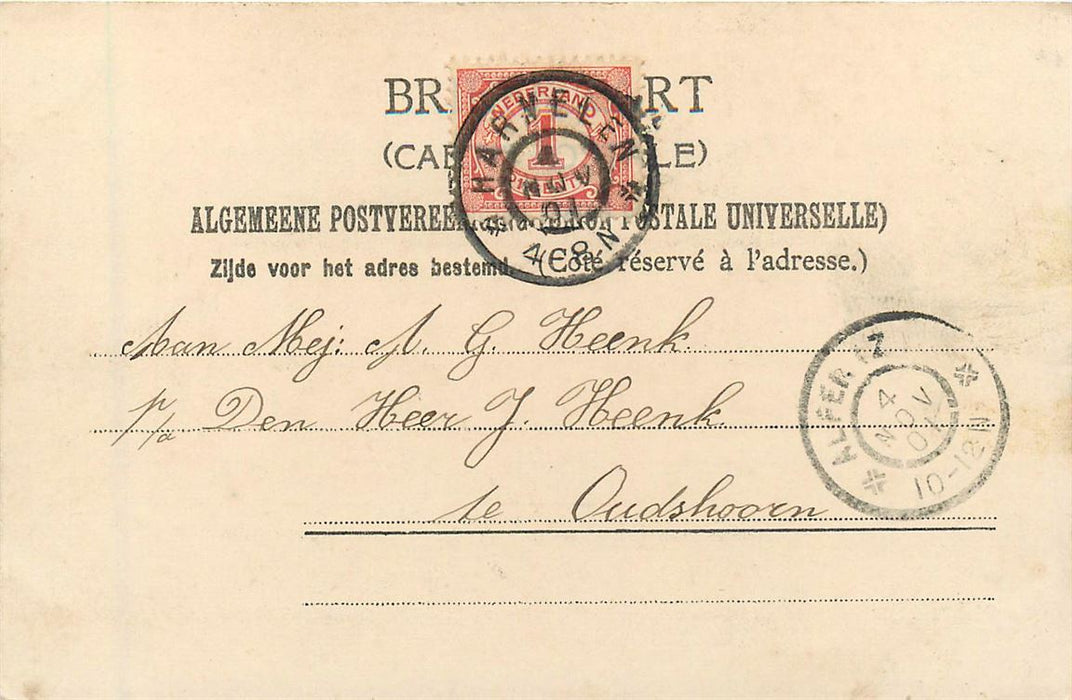 BR RT
(CA LE)
NEDERLAND
1
HARMELEN
4 NOV 01
4-8 N
ALGEMEENE POSTVEREE POSTALE UNIVERSELLE)
Zijde voor het adres bestemd. (Côté réservé à l'adresse.)
Aan Mej: A. G. Heenk.
p/a Den Heer J. Heenk.
te Oudshoorn
ALFEN (Z
4 NOV 01
10-12 N